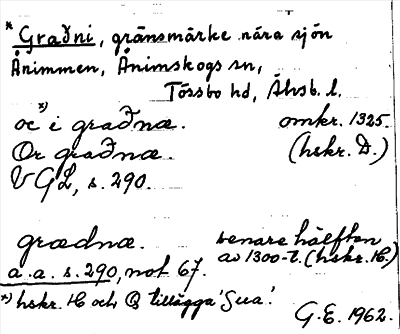 * Graðni, gränsmärke nära sjön
Ånimmen, Ånimskogs sn,
Tössbo hd, Älvsb. l.
oc *) i graðnæ. omkr. 1325.
Or graðnæ. (hskr. D.)
VGL, s. 290.
grædnæ. senare hälften
a. a. s. 290, not 67. av 1300-t. (hskr. H.)
*) hskr. H och B tillägga 'Sua'.
G. E. 1962.